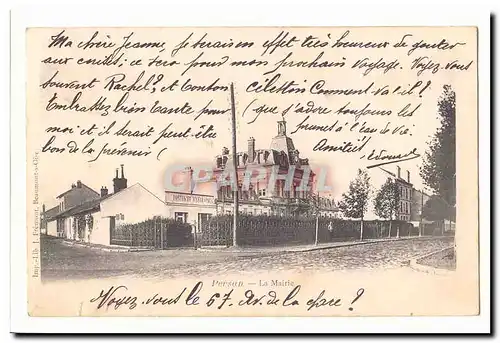 Ma chère Jeanne, je serais en effet très heureux de goûter
aux conids; ce sera pour mon prochain voyage. Voyez-vous
souvent Rachel? et Tonton Célestin Comment va t'il?
Embrassez bien tante pour (que j'adore toujours les
moi et il serait peut-être prunes à l'eau de vie.
bon de la prévenir Amitiés Edouard
CPARAMA
Imp.-Lib. L. Frémont, Beaumont-s-Oise
Persan — La Mairie
Voyez-vous le 57 Av. de la gare?